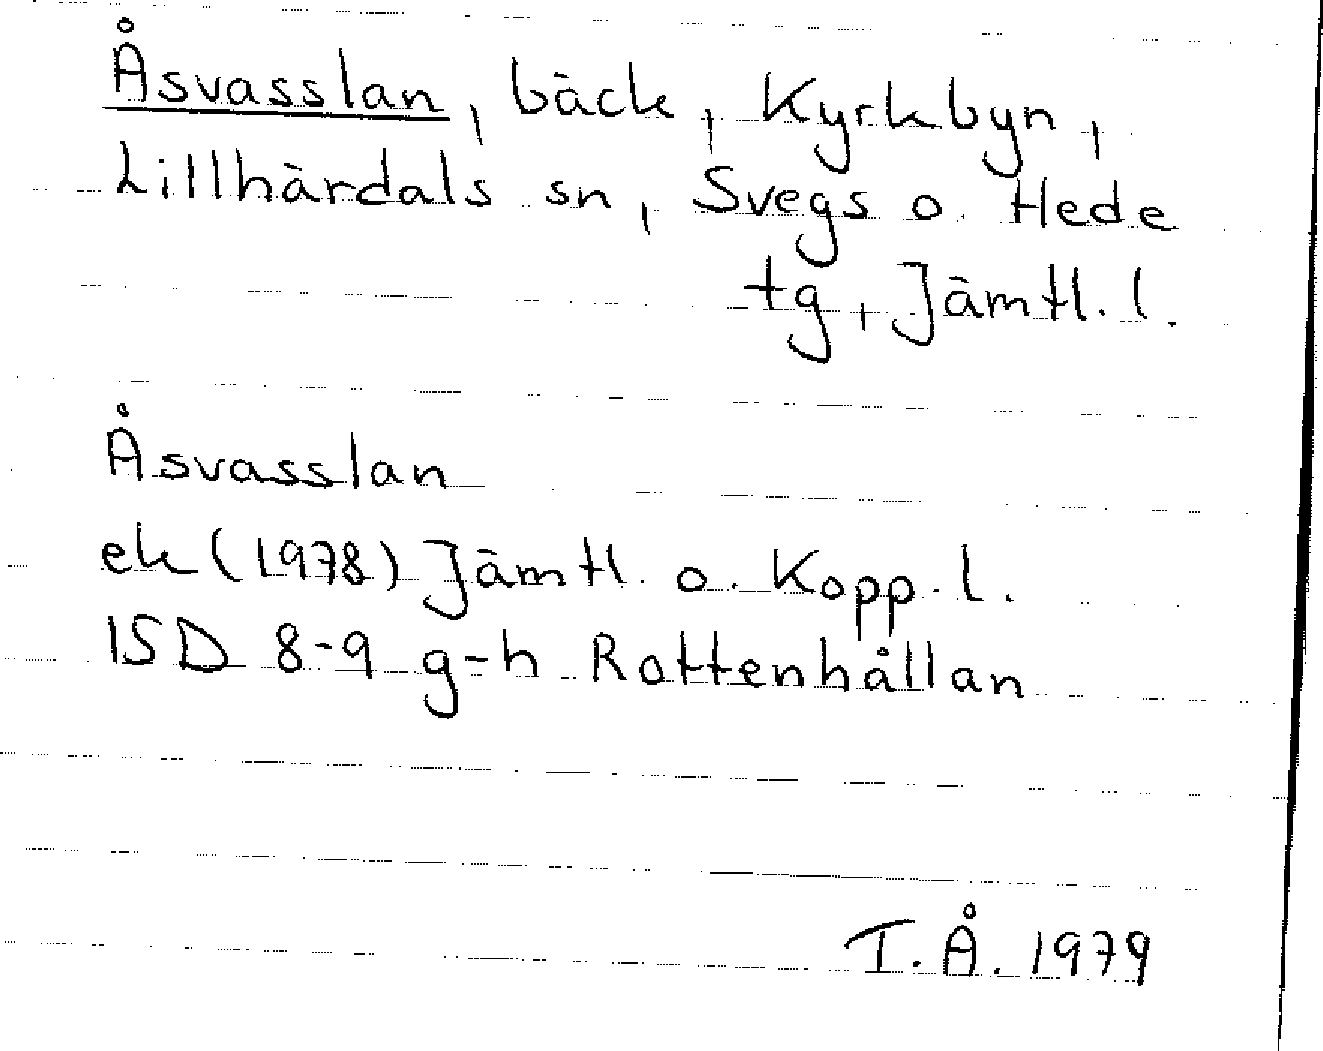 Åsvasslan, bäck, Kyrkbyn,
Lillhärdals sn, Svegs o. Hede
tg, Jämtl. l.
Åsvasslan
ek (1978) Jämtl. o. Kopp. l.
15D 8-9 g-h Rottenhållan
I.Å. 1979